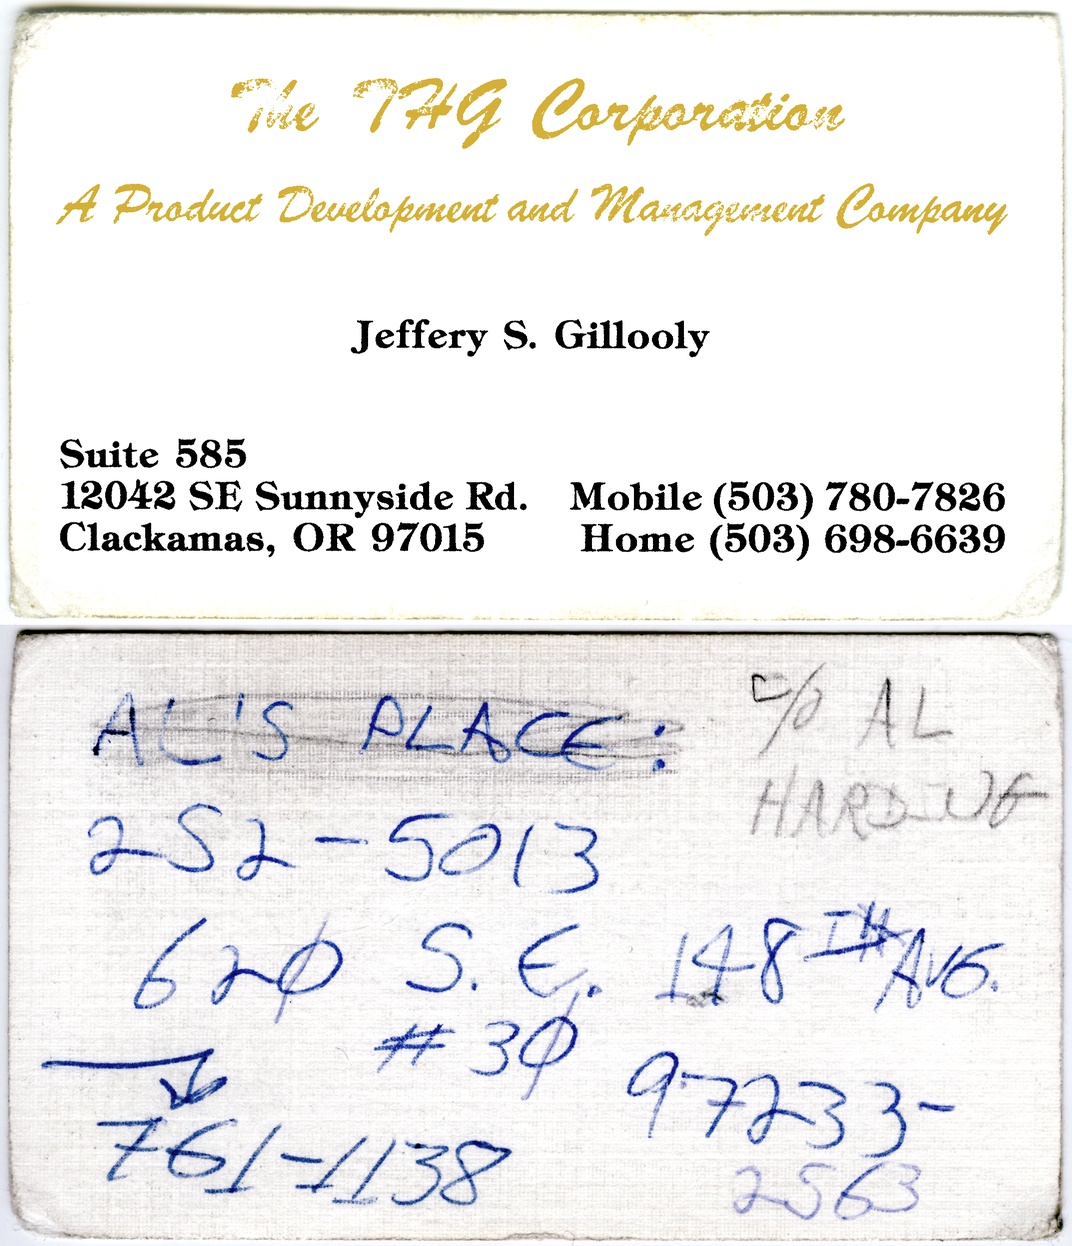 The THG Corporation
A Product Development and Management Company
Jeffery S. Gillooly
Suite 585
12042 SE Sunnyside Rd.
Clackamas, OR 97015
Mobile (503) 780-7826
Home (503) 698-6639
AL'S PLACE:
c/o AL
HARDING
252-5013
620 S.E. 148TH AVE.
#30
97233-
2563
761-1138